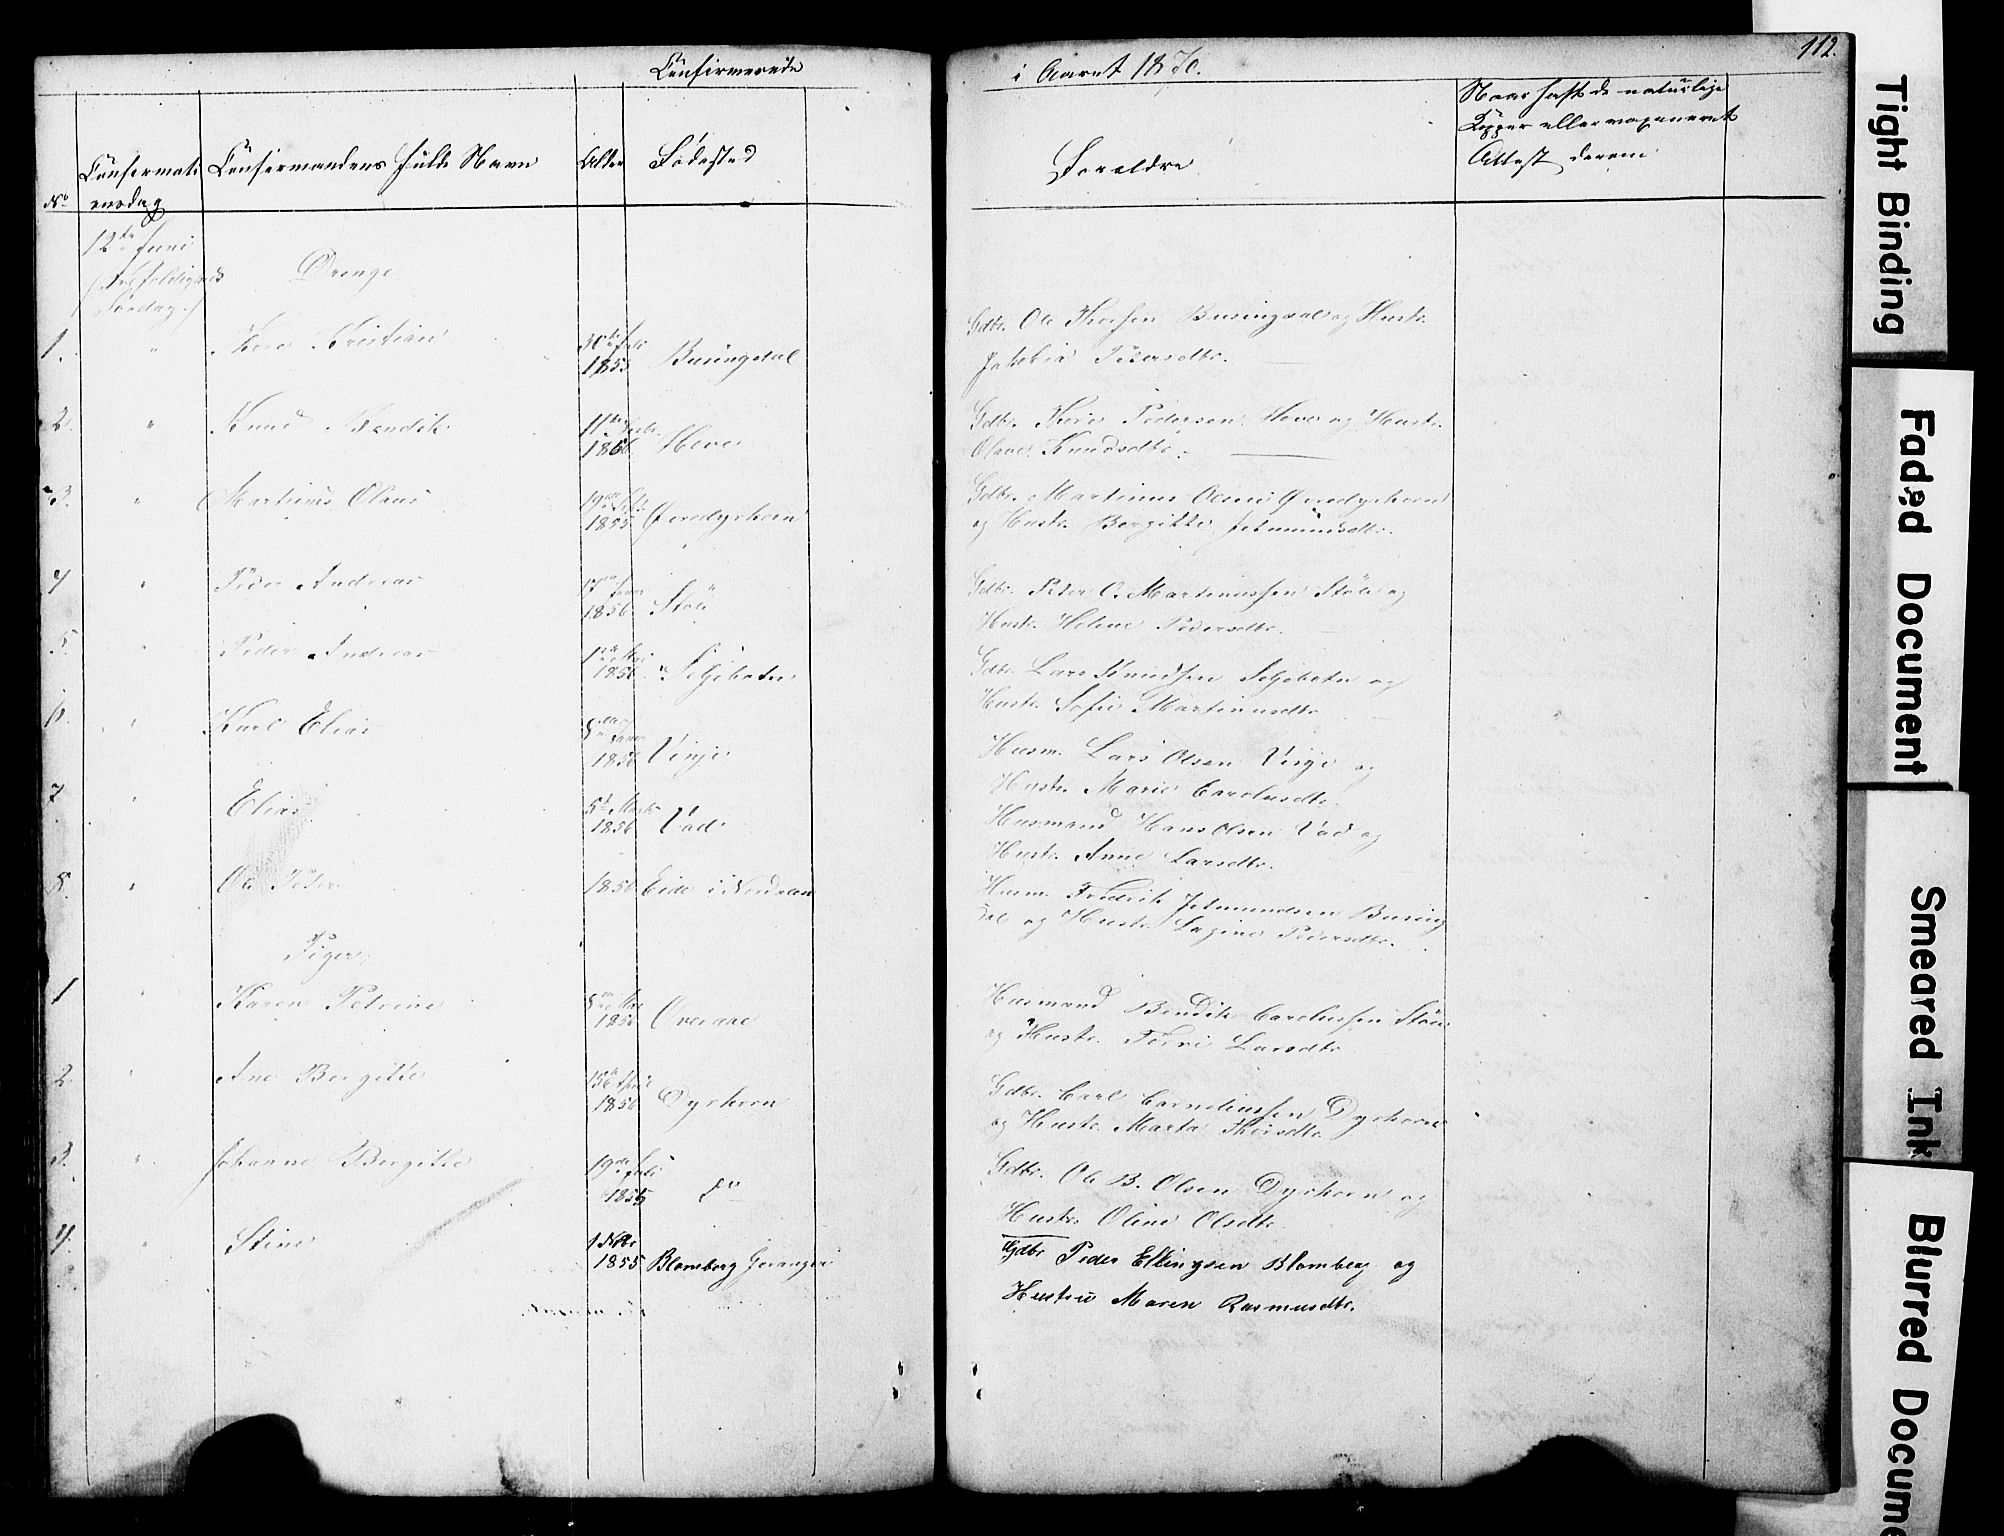 Confirmerede
i Aaret 1870.
112.
No
Confirmati
onsdag
Confirmandens fulde Navn
Alder
Fødested
Forældre
Naar haft de naturlige
Kopper eller vaxineret
Attest derom
12te Juni
(Trefoldigheds
Søndag.)
Drenge
1. " Kristian 30te Juli 1855 Busingdal
Gdbr. Ole Busingdal og Hustr.
Pedersdtr.
2. " Knud Bendik 11te 1856 Hove
Gdbr. Pedersen Hove og Hustr.
Knudsdtr.
3. " Martinus Olaus 19de 1855 Øvredyrhorn
Gdbr. Martinus Øvredyrhorn
og Hustr. Bergitte Jetmundsdtr.
4 " Peder Andreas 17de Janr 1856 Støa
Gdbr. Peter O. Martinussen Støa og
Hustr. Helene Pedersdtr.
5. " Peder Andreas 1ste Mai 1856 Seljebotn
Gdbr. Lars Knudsen Seljebotn og
Hustr. Sofie Martinusdtr.
6. " Karl Elias 8de Janr 1856 Vinje
Husm. Lars Olsen Vinje og
Hustr. Marie Carolusdtr.
7 " Elias 5te Marts 1856 Vad
Husmand Hans Olsen Vad og
Hustr. Anne Larsdtr.
8. " Ole Peter 1856 Eide i Nordalen
Husm. Fredrik Jetmundsen Busing
dal og Hustr. Pedersdtr.
Piger
1 " Karen Petrine 8de Mai 1856 Overaae
Husmand Bendik Carolussen Støa
og Hustr. Larsdtr.
2. " Ane Bergitte 15de April 1856 Dyrhorn
Gdbr. Carl Corneliussen Dyrhorn
og Hustr. Marta
3. " Johanne Bergitte 19de Juli 1855 Do
Gdbr. Ole B. Olsen Dyrhorn og
Hustr. Oline Olsdtr.
4. " Stine 1 Novbr 1855 Blomberg Geranger
Gdbr Peder Ellingsen Blomberg og
Hustru Maren Rasmusdtr.
Tight Binding
Faded Document
Smeared Ink
Blurred Docume